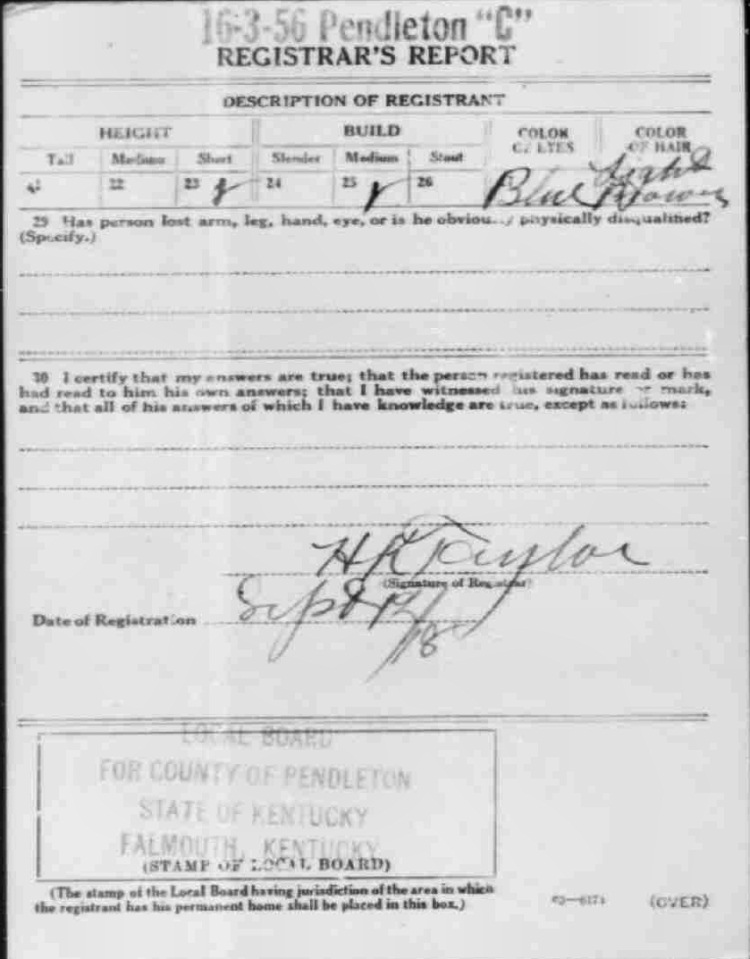 16-3-56 Pendleton "C"
REGISTRAR'S REPORT
DESCRIPTION OF REGISTRANT
HEIGHT BUILD COLOR OF EYES COLOR OF HAIR
Tall Medium Short Slender Medium Stout
21 22 23 24 25 26 Blue Light Brown
29 Has person lost arm, leg, hand, eye, or is he obviously physically disqualified?
(Specify.)
30 I certify that my answers are true; that the person registered has read or has
had read to him his own answers; that I have witnessed his signature or mark,
and that all of his answers of which I have knowledge are true, except as follows:
Taylor
(Signature of Registrar)
Date of Registration Sept 12/18
LOCAL BOARD
FOR COUNTY OF PENDLETON
STATE OF KENTUCKY
FALMOUTH, KENTUCKY
(STAMP OF LOCAL BOARD)
(The stamp of the Local Board having jurisdiction of the area in which
the registrant has his permanent home shall be placed in this box.)
(OVER)